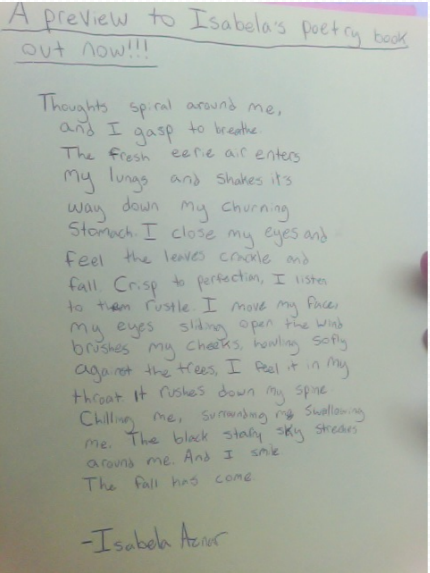 A preview to Isabela's poetry book
out now!!!
Thoughts spiral around me,
and I gasp to breathe.
The fresh eerie air enters
my lungs and shakes it's
way down my churning
stomach. I close my eyes and
feel the leaves crackle and
fall. Crisp to perfection, I listen
to them rustle. I move my face,
my eyes sliding open the wind
brushes my cheeks, howling softly
against the trees, I feel it in my
throat. It rushes down my spine.
Chilling me, surrounding me swallowing
me. The black starry sky streaks
around me. And I smile
The fall has come.
-Isabela Aznar